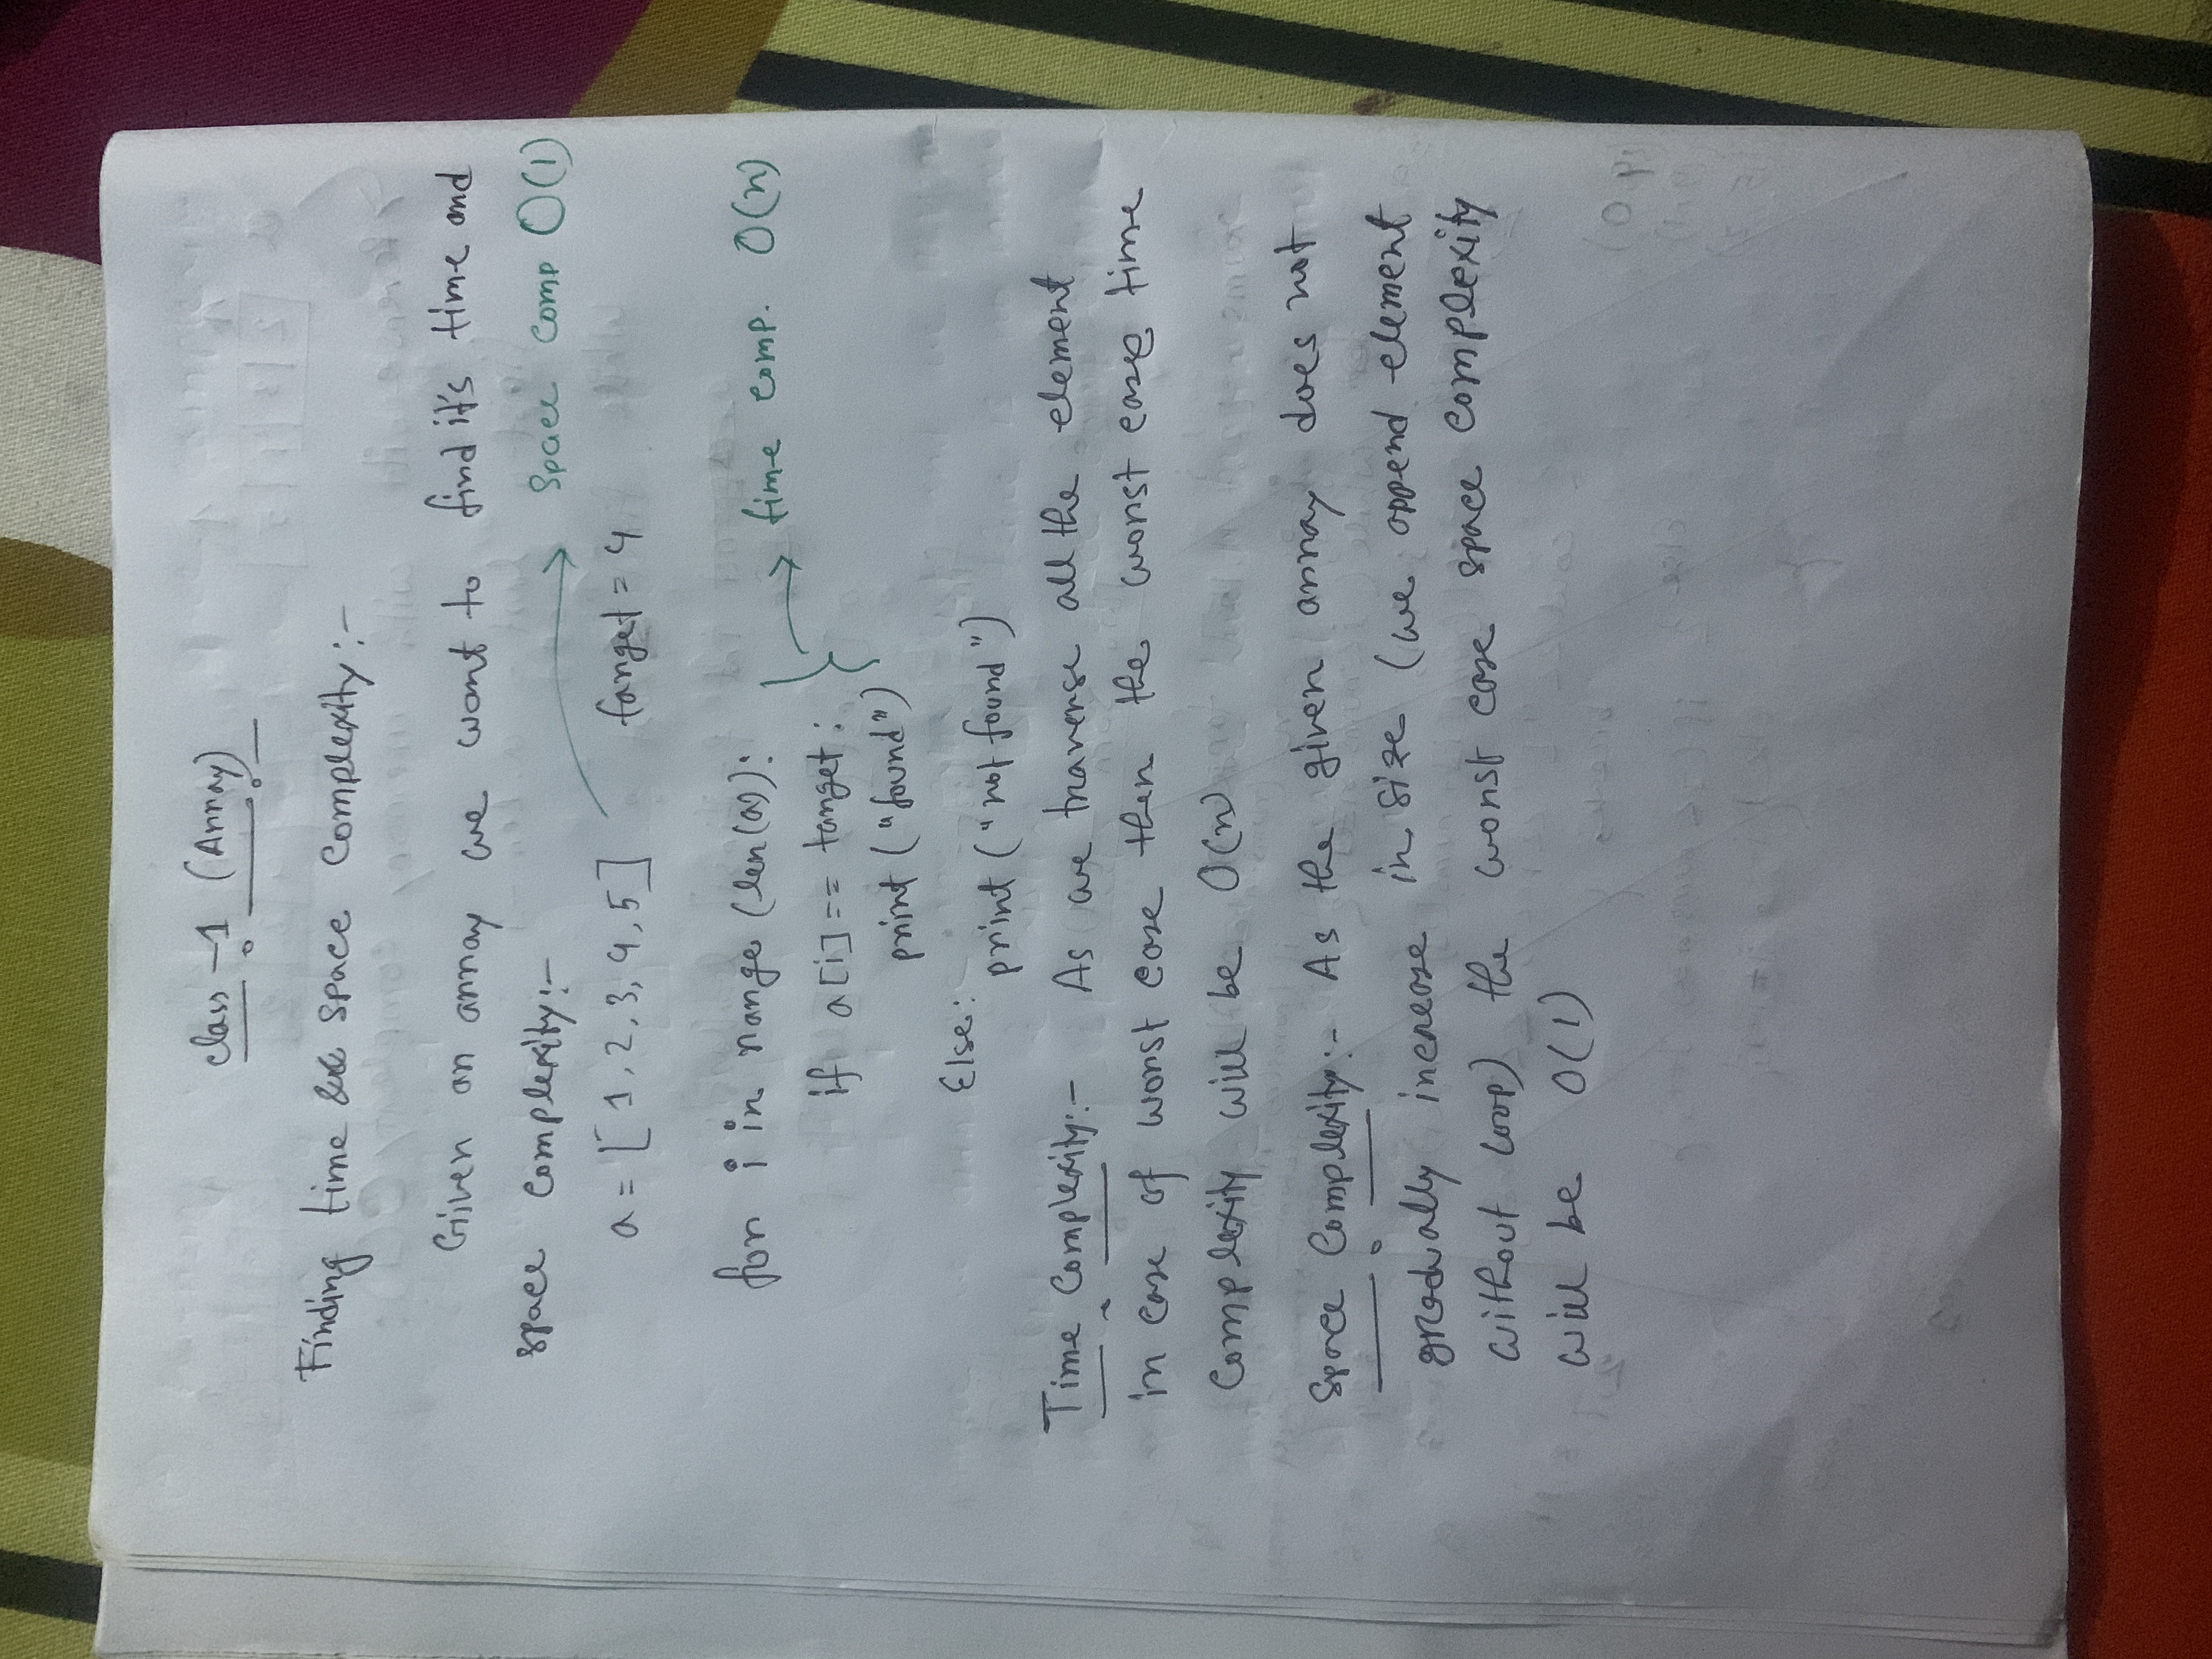 class -1 (Array)
Finding time & space complexity:-
Given an array we want to find it's time and
space complexity:-
Space comp O(1)
a = [1, 2, 3, 4, 5]
target = 4
for i in range (len(a)):
time comp. O(n)
if a[i] == target:
print ("found")
Else:
print ("not found")
Time Complexity:- As we traverse all the element
in case of worst case then the worst case time
complexity will be O(n)
Space Complexity:- As the given array does not
gradually increase in size (we append element
without loop) the worst case space complexity
will be O(1)